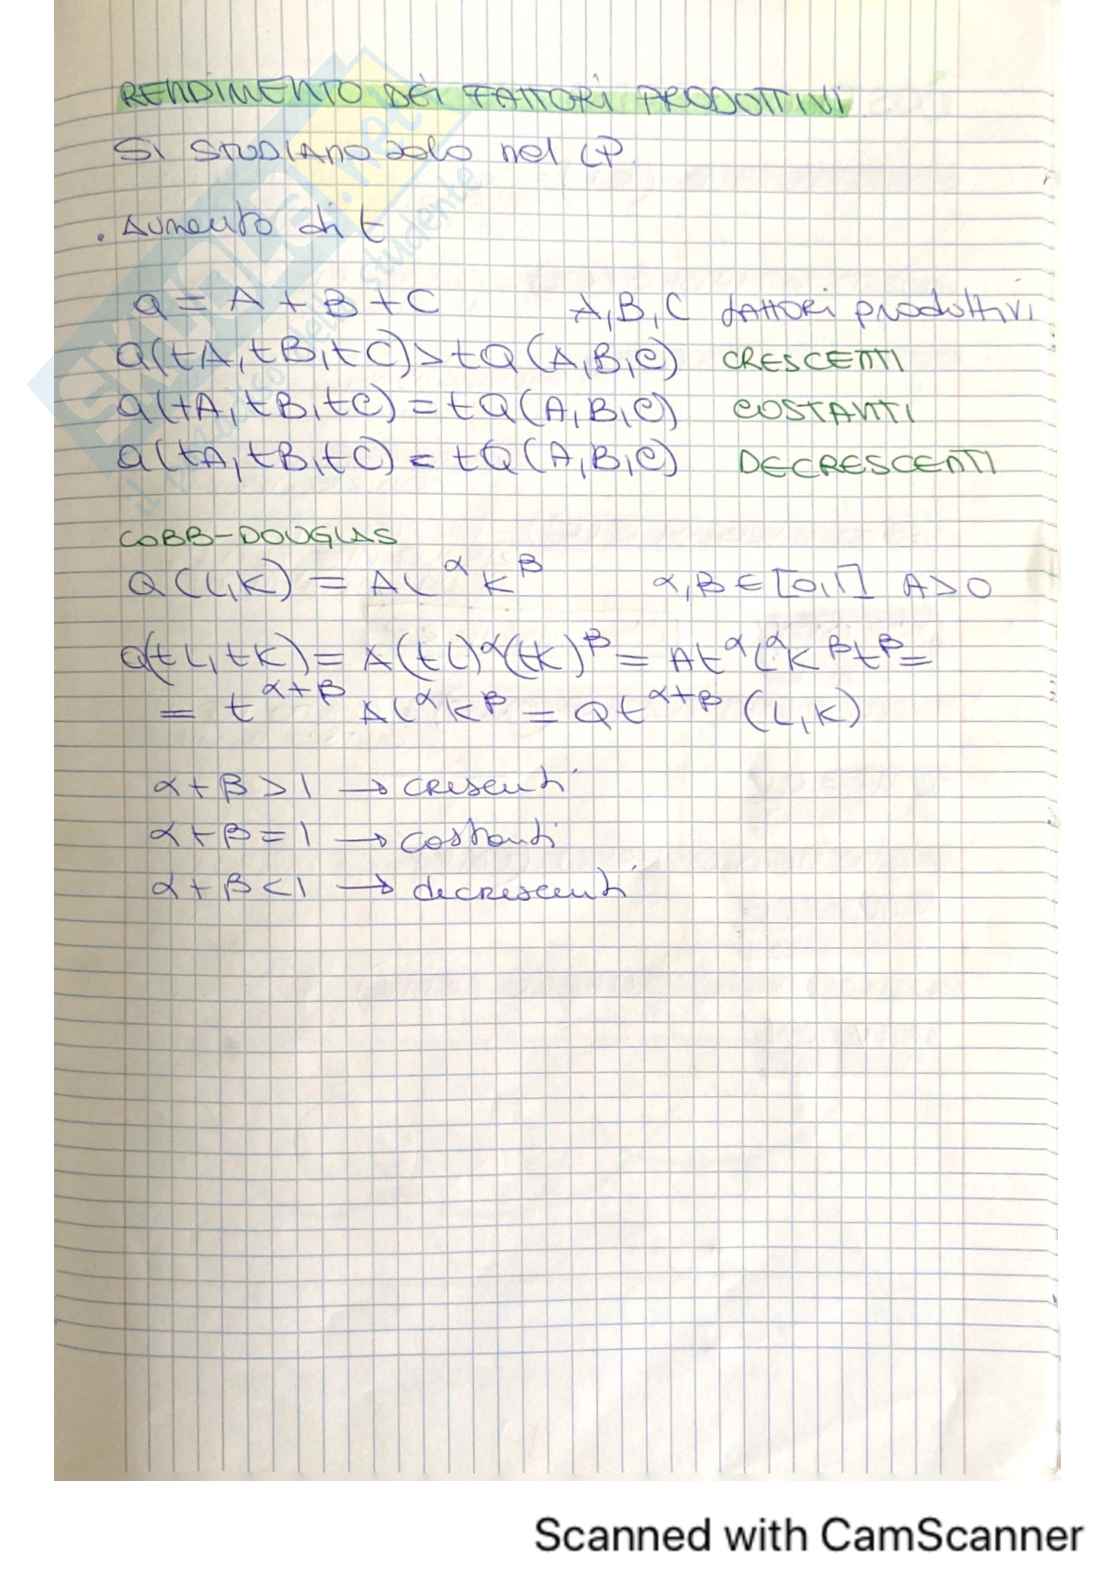 RENDIMENTO DEI FATTORI PRODUTTIVI
SI STUDIANO solo nel LP
. Aumento di t
Q = A + B + C A, B, C fATTORi produttivi
Q(tA, tB, tC) > tQ(A, B, C) CRESCENTI
Q(tA, tB, tC) = tQ(A, B, C) COSTANTI
Q(tA, tB, tC) < tQ(A, B, C) DECRESCENTI
COBB-DOUGLAS
Q(L, K) = AL^α K^β α, β ∈ [0, 1] A > 0
Q(tL, tK) = A(tL)^α (tK)^β = At^α L^α K^β t^β =
= t^α+β AL^α K^β = Qt^α+β (L, K)
α + β > 1 → crescenti
α + β = 1 → costanti
α + β < 1 → decrescenti
SKUOLA.net
il paradiso dello studente
Scanned with CamScanner